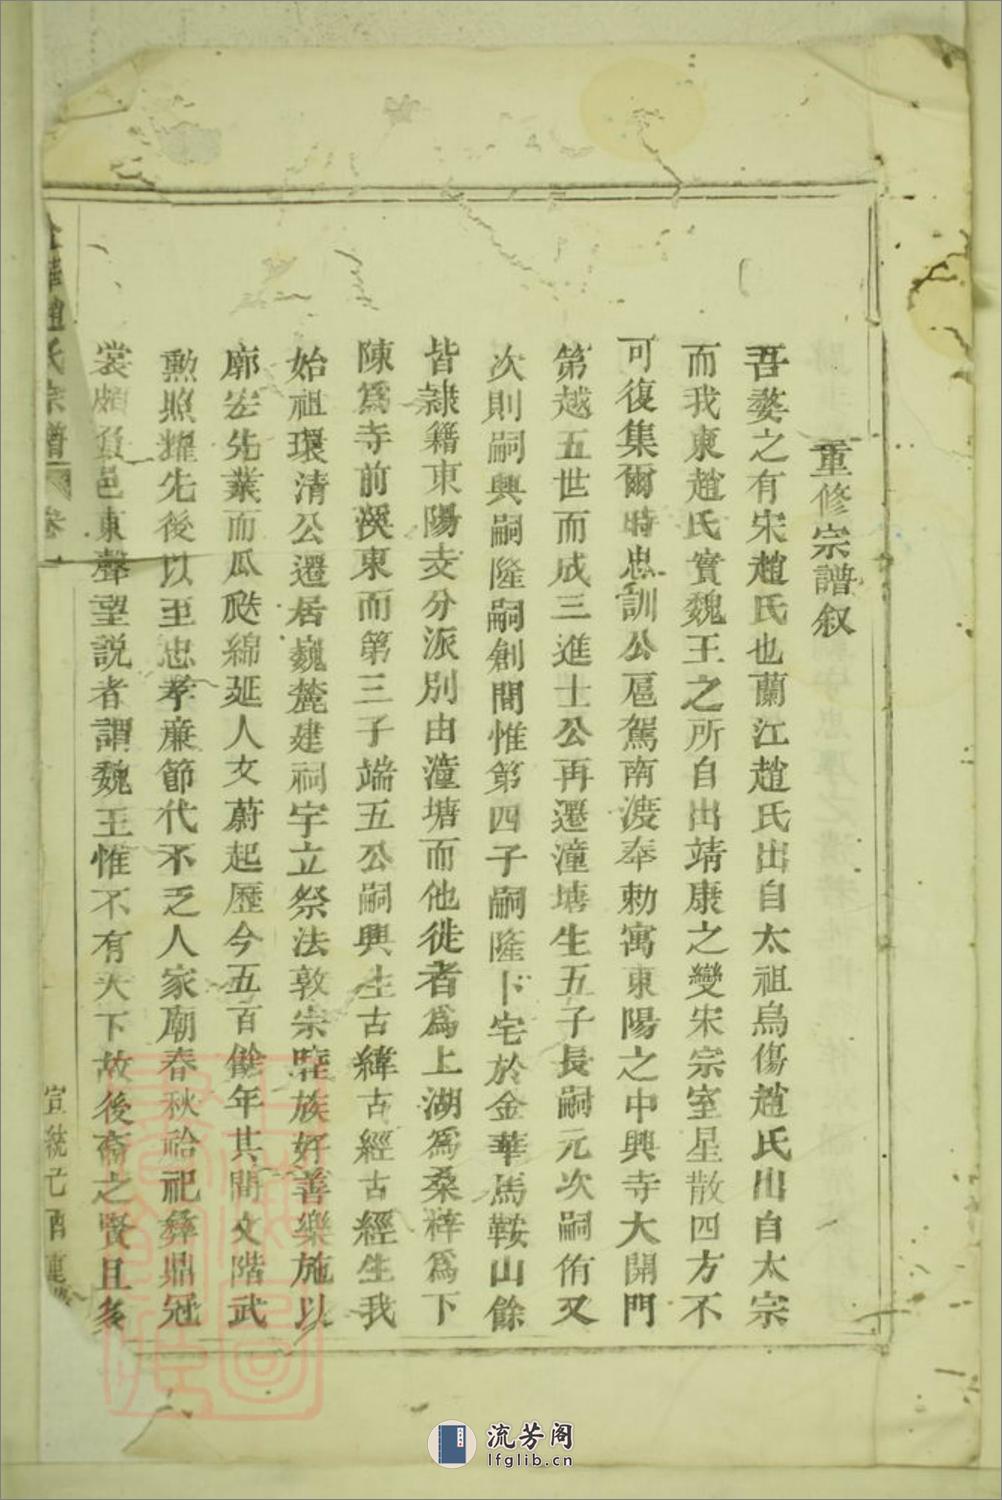 重修宗譜叙
吾婺之有宋趙氏也蘭江趙氏出自太祖烏傷趙氏出自太宗
而我東趙氏實魏王之所自出靖康之變宋宗室星散四方不
可復集爾時忠訓公扈駕南渡奉勅寓東陽之中興寺大開門
第越五世而成三進士公再遷潼塘生五子長嗣元次嗣侑又
次則嗣興嗣隆嗣創間惟第四子嗣隆卜宅於金華馬鞍山餘
皆隷籍東陽支分派別由潼塘而他徙者為上湖為桑梓為下
陳為寺前溪東而第三子端五公嗣興生古緯古經古經生我
始祖環清公遷居巍麓建祠宇立祭法敦宗睦族好善樂施以
廓宏先業而瓜瓞綿延人文蔚起歷今五百餘年其間文階武
勲照耀先後以至忠孝廉節代不乏人家廟春秋祫祀彝鼎冠
裳頗負邑東聲望説者謂魏王惟不有天下故後裔之賢且多
華趙氏宗譜 卷
宣統己酉重
流芳阁
lfglib.cn